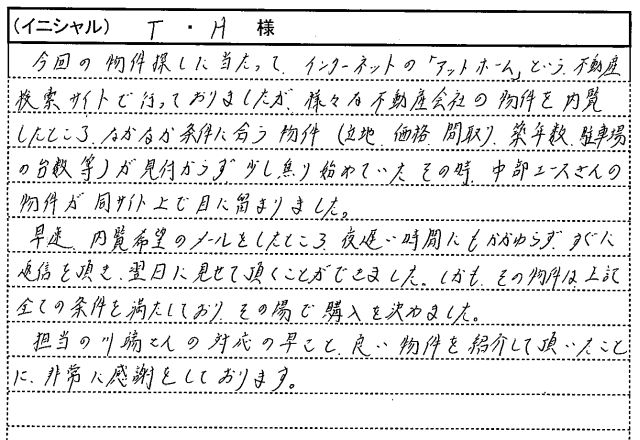 (イニシャル) T ・ H 様
今回の物件探しに当たって、インターネットの「アットホーム」という、不動産
検索サイトで行っておりましたが、様々な不動産会社の物件を内覧
したところ、なかなか条件に合う物件(立地、価格、間取り、築年数、駐車場
の台数等)が見付からず、少し焦り始めていたその時、中部エースさんの
物件が同サイト上で目に留まりました。
早速、内覧希望のメールをしたところ、夜遅い時間にもかかわらず、すぐに
返信を頂き、翌日に見せて頂くことができました。しかも、その物件は上記
全ての条件を満たしており、その場で購入を決めました。
担当の川端さんの対応の早さと、良い物件を紹介して頂いたこと
に、非常に感謝をしております。